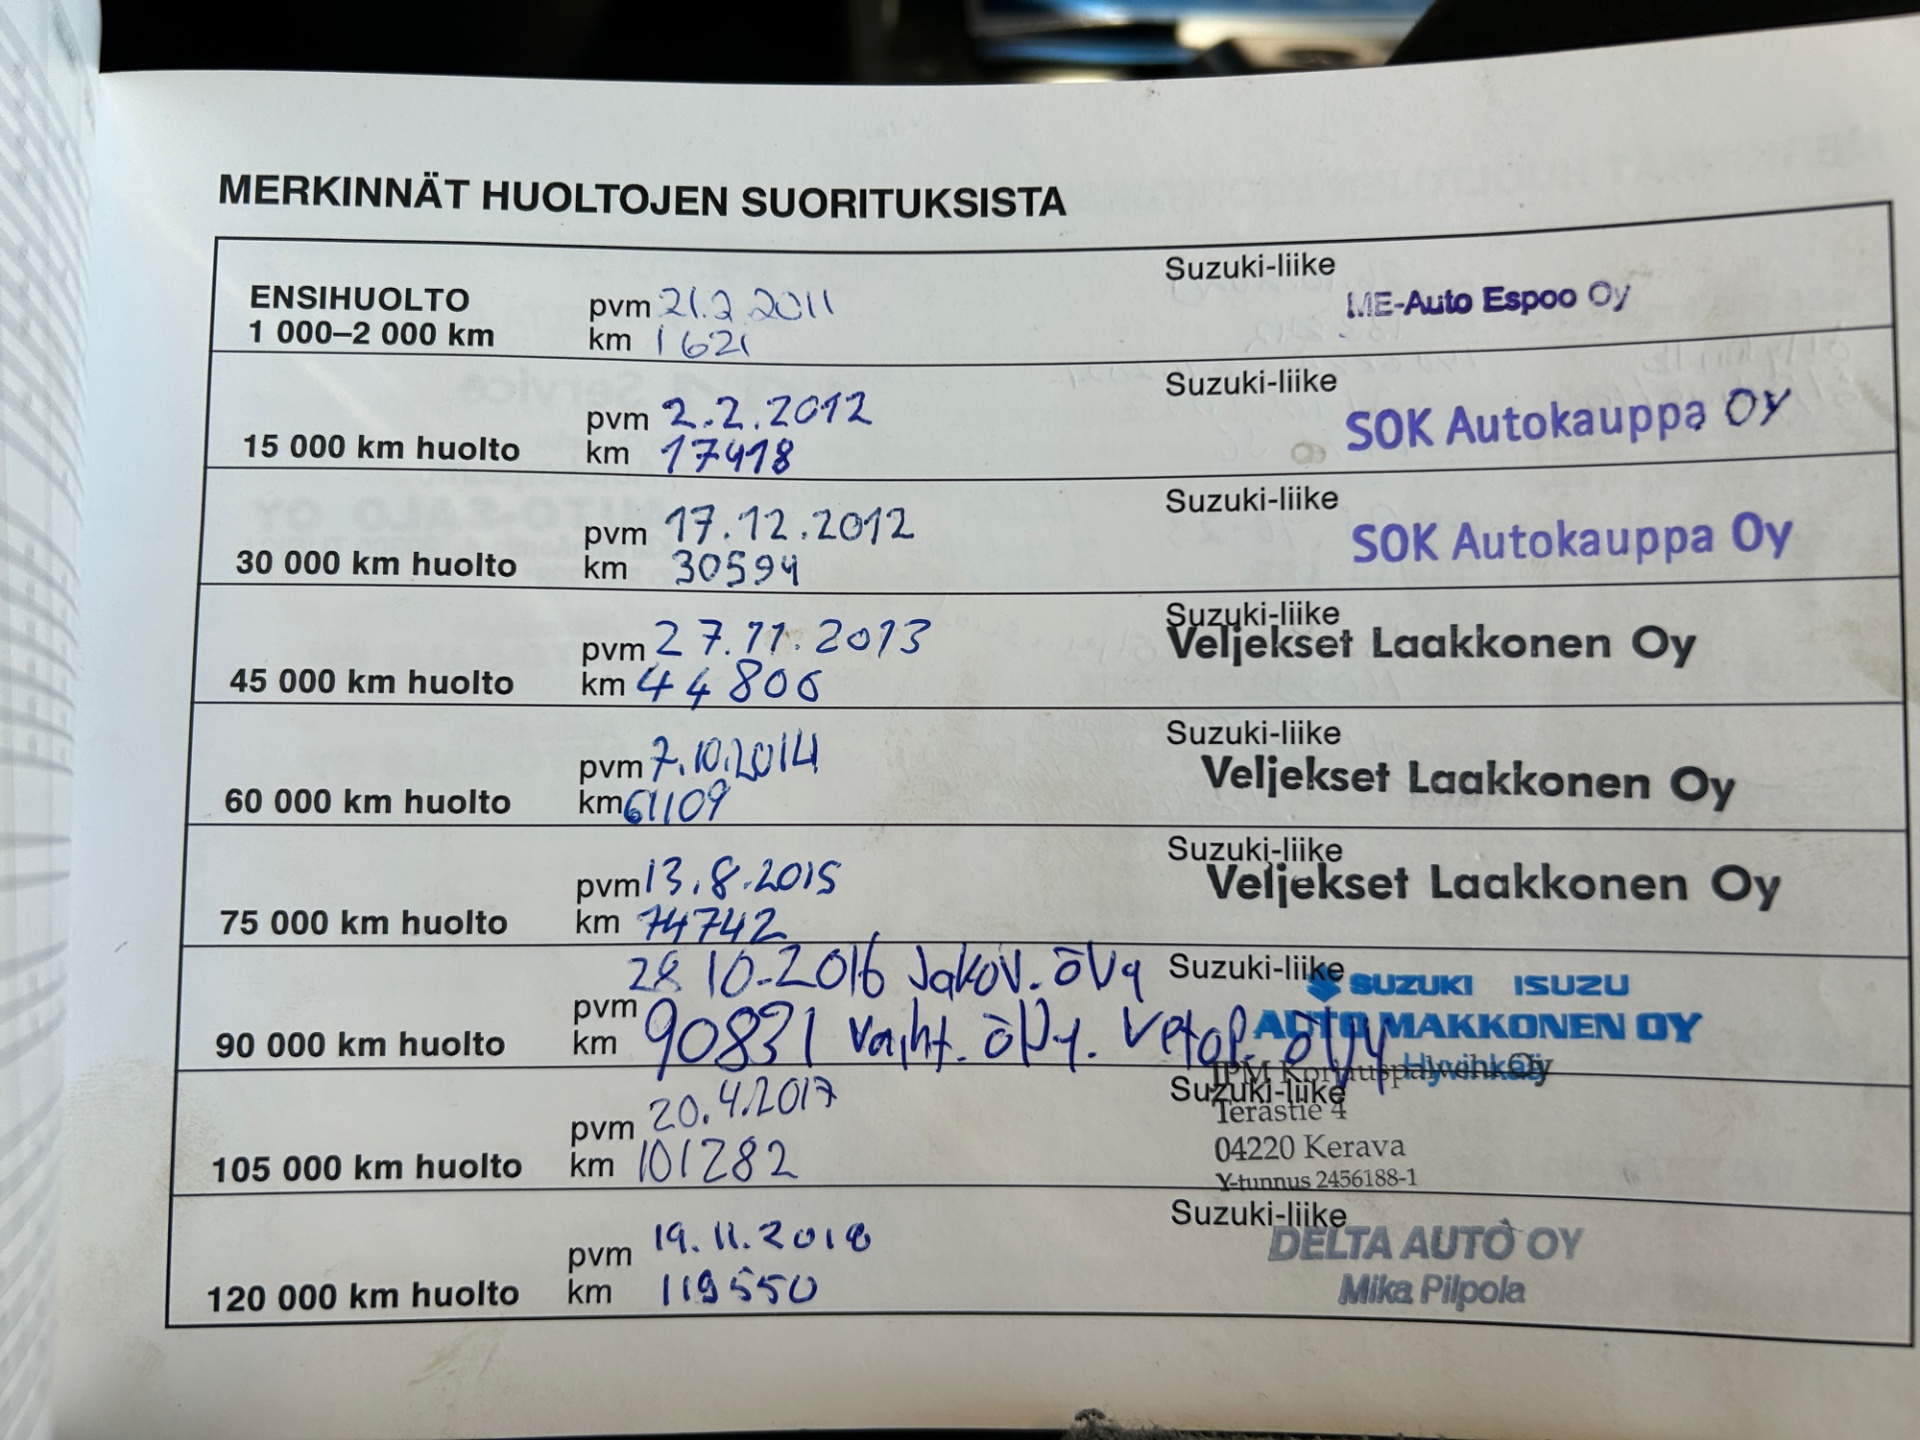 MERKINNÄT HUOLTOJEN SUORITUKSISTA
ENSIHUOLTO
1 000–2 000 km
pvm 21.2.2011
km 1621
Suzuki-liike
ME-Auto Espoo Oy
15 000 km huolto
pvm 2.2.2012
km 17418
Suzuki-liike
SOK Autokauppa OY
30 000 km huolto
pvm 17.12.2012
km 30594
Suzuki-liike
SOK Autokauppa Oy
45 000 km huolto
pvm 27.11.2013
km 44806
Suzuki-liike
Veljekset Laakkonen Oy
60 000 km huolto
pvm 7.10.2014
km 61109
Suzuki-liike
Veljekset Laakkonen Oy
75 000 km huolto
pvm 13.8.2015
km 74742
Suzuki-liike
Veljekset Laakkonen Oy
90 000 km huolto
pvm 28 10-2016 Jakov. öljy
km 90831 vaiht. öljy. Vetop. öljy
Suzuki-liike
SUZUKI ISUZU
AUTO MAKKONEN OY
Hyvinkää
105 000 km huolto
pvm 20.4.2017
km 101282
Suzuki-liike
JPM Korjauspalvelu Oy
Terästie 4
04220 Kerava
Y-tunnus 2456188-1
120 000 km huolto
pvm 19.11.2018
km 119550
Suzuki-liike
DELTA AUTO OY
Mika Pilpola